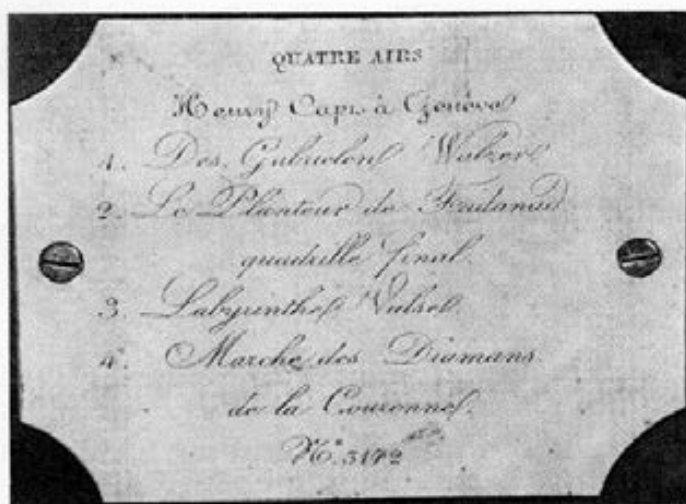 QUATRE AIRS
Henry Capt à Genève
1. Des Walzer
2. Le Planteur de
quadrille final
3. Labyrinthe Valse
4. Marche des Diamans
de la Couronne.
No. 3172